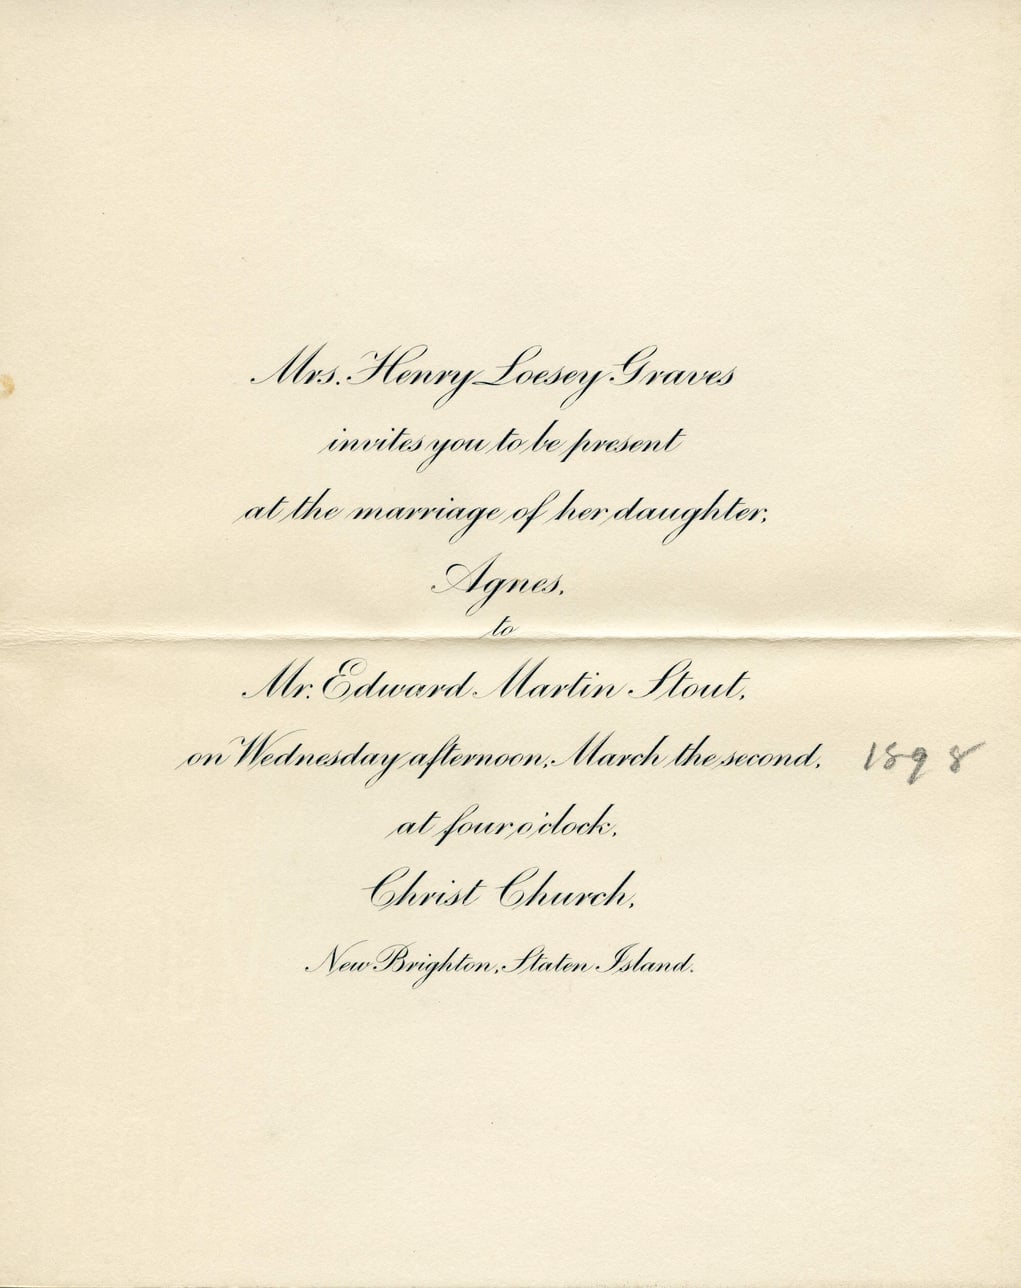 Mrs. Henry Loesey Graves
invites you to be present
at the marriage of her daughter,
Agnes,
to
Mr. Edward Martin Stout,
on Wednesday afternoon, March the second, 1898
at four o'clock,
Christ Church,
New Brighton, Staten Island.